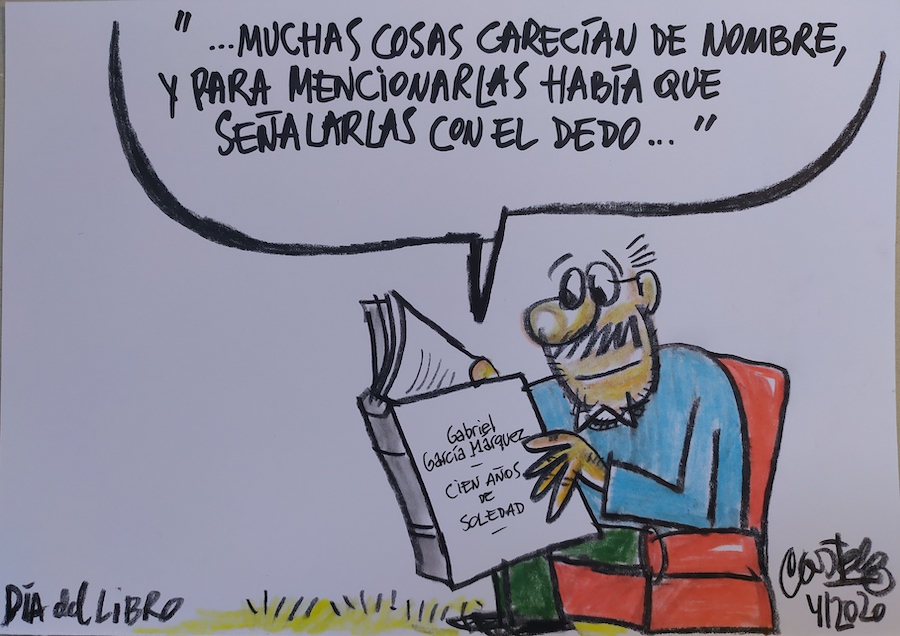 "...MUCHAS COSAS CARECÍAN DE NOMBRE,
Y PARA MENCIONARLAS HABÍA QUE
SEÑALARLAS CON EL DEDO..."
Gabriel
García Márquez
—
CIEN AÑOS
DE
SOLEDAD
—
DÍA del LIBRO
4/2020